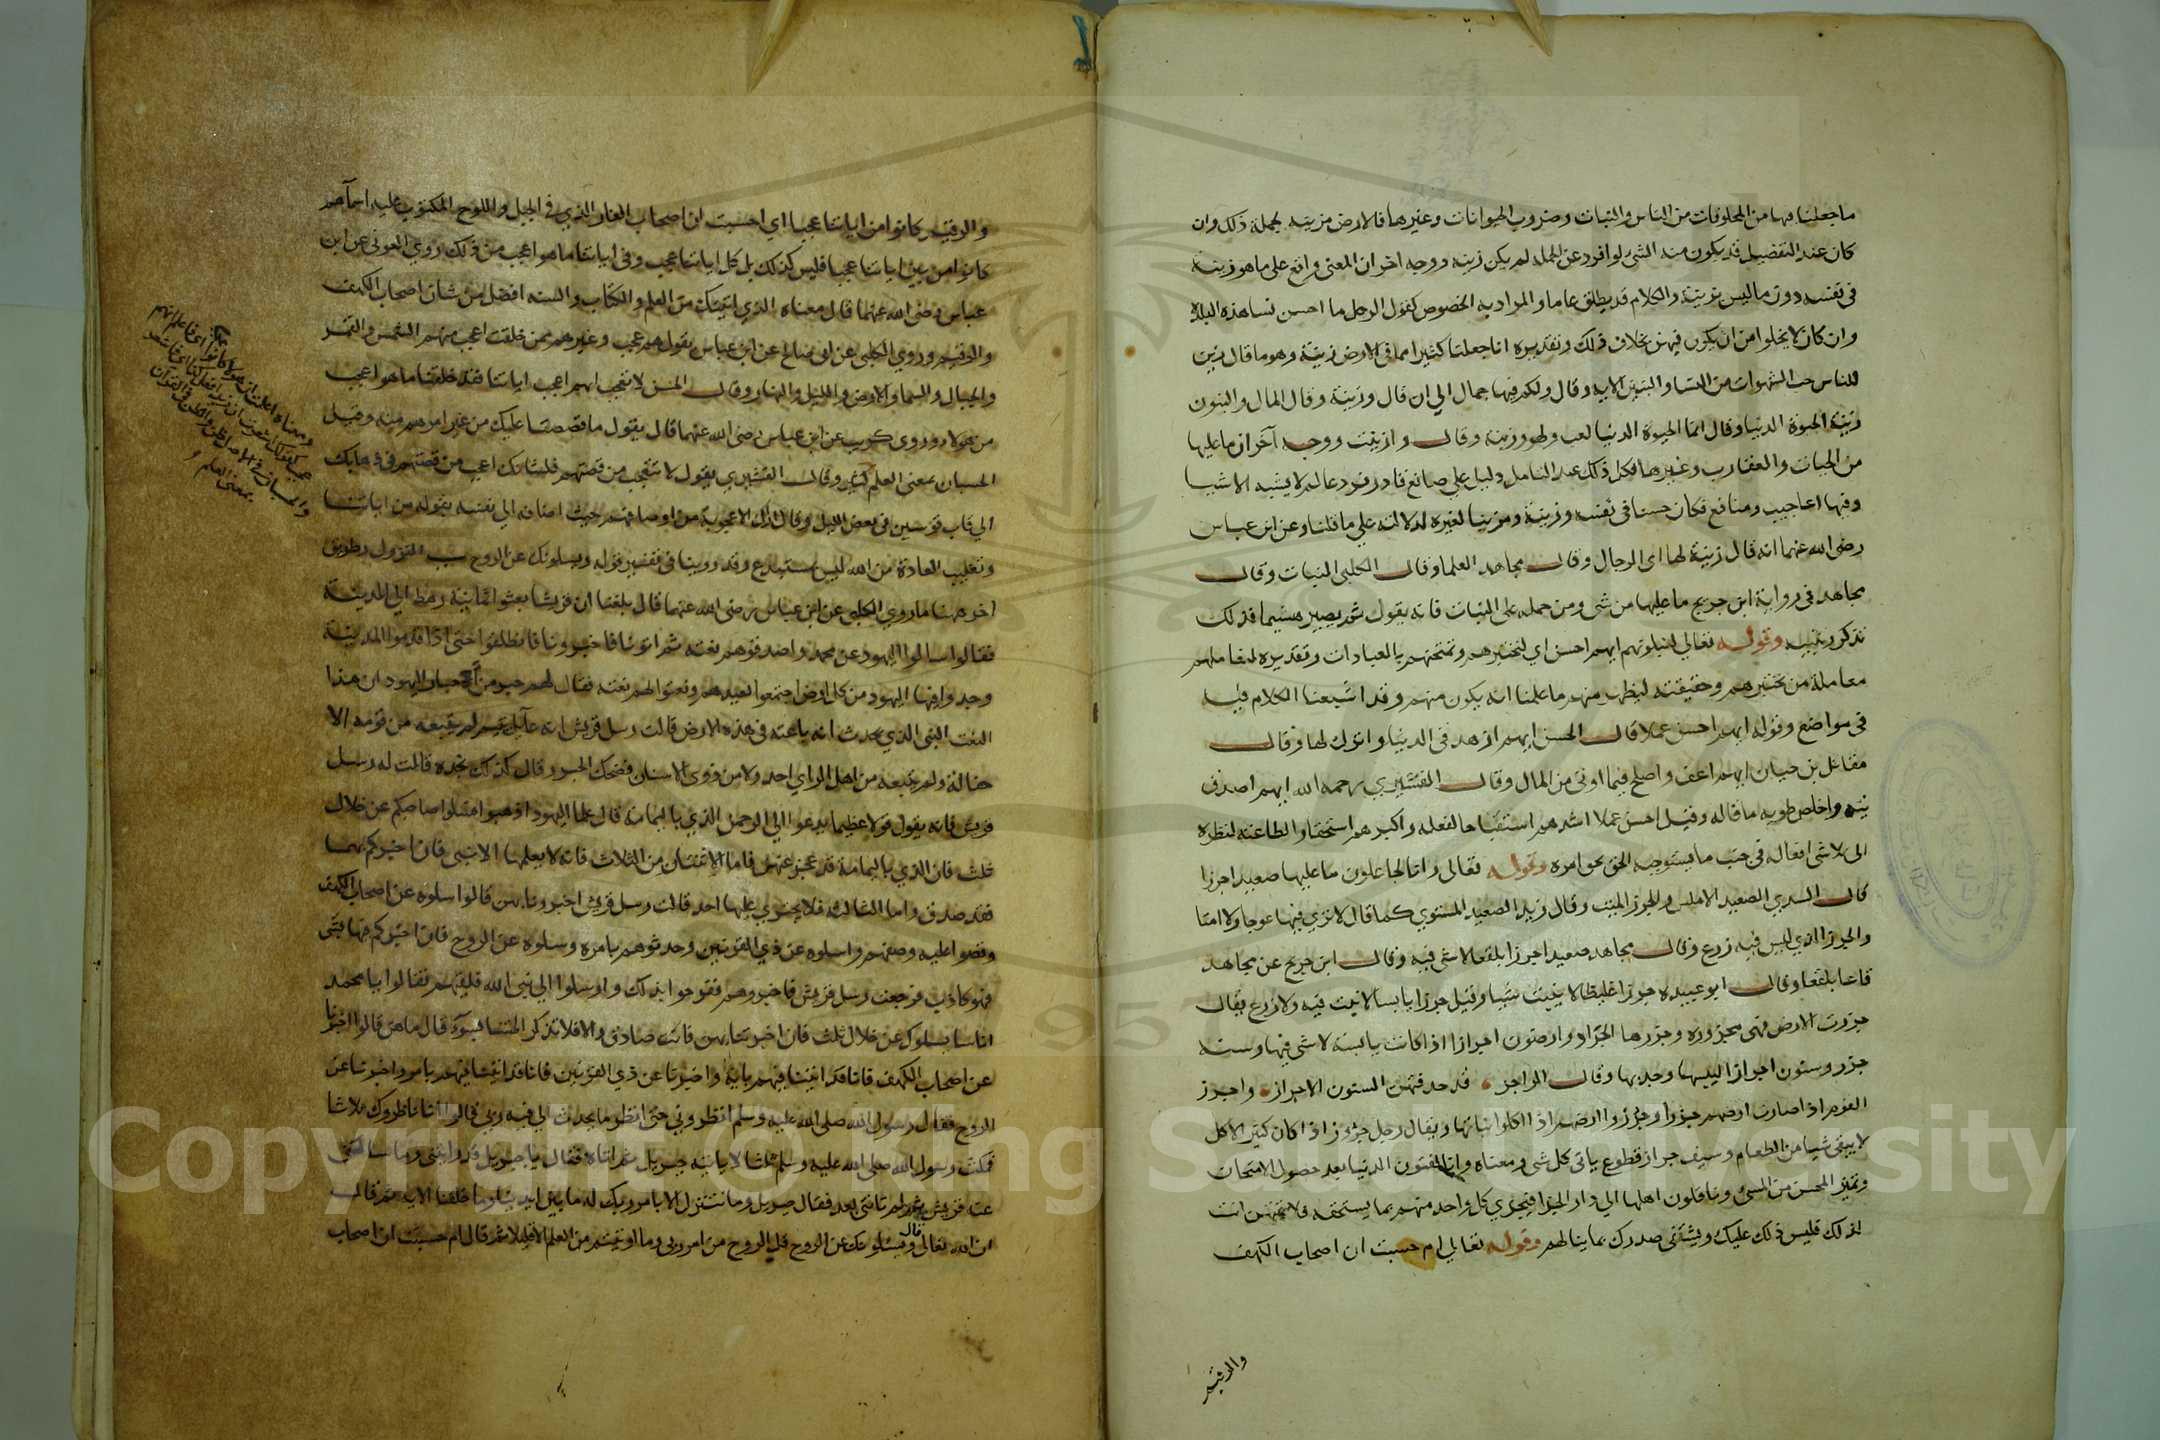 ما جعلنا فيها من المخلوقات من الناس والنبات وضروب الحيوانات وغيرها فالارض مزينة بجملة ذلك وان
كان عند التفصيل قد يكون منه الشئ لو افرد عن الجملة لم يكن زينة ووجه اخر ان المعنى واقع على ما هو زينة
في نفسه دون ما ليس بزينة والكلام قد يطلق عاما والمراد به الخصوص كقول الرجل ما احسن نسا هذه البلدة
وان كان لا يخلوا من ان يكون فيهن بخلاف ذلك وتقديره انا جعلنا كثيرا مما في الارض زينة وهو ما قال زين
للناس حب الشهوات من النسا والبنين الاية وقال ولكم فيها جمال الي ان قال وزينة وقال المال والبنون
زينة الحيوة الدنيا وقال انما الحيوة الدنيا لعب ولهو وزينة وقال وازينت ووجه آخر ان ما عليها
من الحيات والعقارب وغيرها فكل ذلك عند التامل دليل علي صانع قادر فرد عالم لا يشبه الاشيا
وفيها اعاجيب ومنافع فكان حسنا في نفسه وزينة ومزينا لغيره لدلالته علي ما قلنا وعن ابن عباس
رضى الله عنهما انه قال زينة لها اى الرجال وقال مجاهد العلما وقال الكلبى النبات وقال
مجاهد في رواية ابن جريج ما عليها من شى ومن حمله على النبات فانه يقول ثم يصير هشيما فذلك
تذكر وتنبيه وقوله تعالي لنبلونهم ايهم احسن اي لنختبرهم ونمتحنهم بالعبادات وتقديره لنعاملهم
معاملة من نختبرهم وحقيقته ليظهر منهم ما علمنا انه يكون منهم وقد اشبعنا الكلام فيه
في مواضع وقوله ايهم احسن عملا قال الحسن ايهم ازهد في الدنيا واترك لها وقال
مقاتل بن حيان ايهم اعف واصلح فيما اوتى من المال وقال القشيري رحمه الله ايهم اصدق
نية واخلص طوية ما قاله وقيل احسن عملا اشدهم استقباحا لفعله واكبرهم استحقارا لطاعته لنظره
الى تلاشى افعاله في جنب ما يستوجبه الحق بحق امره وقوله تعالى وانا لجاعلون ما عليها صعيدا جرزا
قال السدي الصعيد الاملس والجرز الميت وقال زيد الصعيد المستوي كما قال لا ترى فيها عوجا ولا امتا
والجرز الذي ليس فيه زرع وقال مجاهد صعيدا جرزا بلقعا لا شى فيه وقال ابن جريج عن مجاهد
قاعا بلقعا وقال ابو عبيدة جرزا غليظا لا ينبت شيا وقيل جرزا يابسا لا نبت فيه ولا زرع يقال
جرزت الارض فهى مجروزة وجرزها الجراد وارضون اجرازا اذا كانت يابسة لا شى فيها وسنة
جرز وسنون اجراز ليبسها وجدبها وقال الراجز قد جرفتهن السنون الاجراز واجرز
القوم اذا صارت ارضهم جرزا وجرزوا ارضهم اذا اكلوا نباتها ويقال رجل جروز اذا كان كثير الاكل
لا يبقى شيا من الطعام وسيف جراز قطوع ياتى كل شى ومعناه وانا لمفنون الدنيا بعد حصول الامتحان
وتميز المحسن من المسئ وناقلون اهلها الي دار الجزا فيجزي كل واحد منهم بما يستحقه فلا تمتهن انت
لذلك فليس ذلك عليك ويشفى صدرك بما ينالهم وقوله تعالي ام حسبت ان اصحاب الكهف
والرقيم
والرقيم كانوا من اياتنا عجبا اي احسبت ان اصحاب الغار الذي في الجبل واللوح المكتوب عليه اسمآهم
كانوا من بين اياتنا عجبا فليس كذلك بل كل اياتنا عجب وفى اياتنا ما هو اعجب من ذلك روي العوفى عن ابن
عباس رضى الله عنهما قال معناه الذي اتيتك من العلم والكتاب والسنة افضل من شان اصحاب الكهف
والرقيم وروي الكلبى عن ابى صالح عن ابن عباس يقول هم عجب وغيرهم ممن خلقت اعجب منهم الشمس والقمر
والجبال والسما والارض والليل والنهار وقال الحسن لا تعجب ايهم اعجب اياتنا فقد خلقنا ما هو اعجب
من هولاء وروى كريب عن ابن عباس رضى الله عنهما قال يقول ما قصصنا عليك من غير امرهم منه وقيل
الحسبان بمعنى العلم كثير وقال القشيري يقول لا تتعجب من قصتهم فشانك اعجب من قصتهم في ذهابك
الي قاب قوسين في بعض الليل وقال ازال الاعجوبة من اوصافهم حيث اضافه الي نفسه بقوله من اياتنا
وتغليب العادة من الله ليس بمستبدع وقد روينا في تفسير قوله ويسلونك عن الروح سبب النزول وطريق
اخر ههنا ما روي الكلبى عن ابن عباس رضى الله عنهما قال بلغنا ان قريشا بعثوا ثمانية رهط الي المدينة
فقالوا سالوا اليهود عن محمد واصدقوهم نعته ثم ائتونا فاخبرونا فانطلقوا حتى اذا قدموا المدينة
وجدوا فيها اليهود من كل ارض اجتمعوا لعيدهم ونعتوا لهم نعته فقال لهم حبر من احبار اليهود ان هذا
النعت النبى الذي يحدث انه باعثه في هذه الارض قالت رسل قريش انه عآيل يتيم لم يتبعه من قومه الا
حثالة ولم يتبعه من اهل الراي احد ولا من ذوى الاسنان فضحك الحبر وقال كذلك نجده قالت له رسل
قريش فانه يقول قولا عظيما يدعوا الي الرحمن الذي باليمامة قال علما اليهود اذهبوا فسلوا صاحبكم عن خلال
ثلث فان الذي باليمامة قد عجز عنهن فاما الاثنتان من الثلاث فانه لا يعلمها الا نبى فان اخبركم بهما
فقد صدق واما الثالثة فلا يجتري عليها احد قالت رسل قريش اخبرونا بهن قالوا سلوه عن اصحاب الكهف
وقصوا عليه وصفهم واسلوه عن ذي القرنين وحدثوهم بامره وسلوه عن الروح فان اخبركم فيها بشى
فهو كاذب فرجعت رسل قريش فاخبروهم ففرحوا بذلك وارسلوا الي نبى الله فلقيهم فقالوا يا محمد
انا سايلوك عن خلال ثلث فان اخبرتنا بهن فانت صادق والا فلا تذكر الهتنا بسوء قال ما هن قالوا اخبرنا
عن اصحاب الكهف فانا قد انبئنا فيهم باية واخبرنا عن ذي القرنين فانا قد انبئنا فيه بامر واخبرنا عن
الروح فقال رسول الله صلى الله عليه وسلم انظروني حتى انظر ما يحدث الي فيه ربي قالوا انا ناظروك ثلاثا
فمكث رسول الله صلى الله عليه وسلم ثلثا لا ياتيه جبريل ثم اتاه فقال يا جبريل قد رابتنى وما سالتنى
عنه قريش ثم لم تاتنى بعد فقال جبريل وما نتنزل الا بامر ربك له ما بين ايدينا وما خلفنا الاية ثم قال
ان الله تعالى قال ويسئلونك عن الروح قل الروح من امر ربى وما اوتيتم من العلم الا قليلا ثم قال ام حسبت ان اصحاب
Copyright © King Saud University
1957